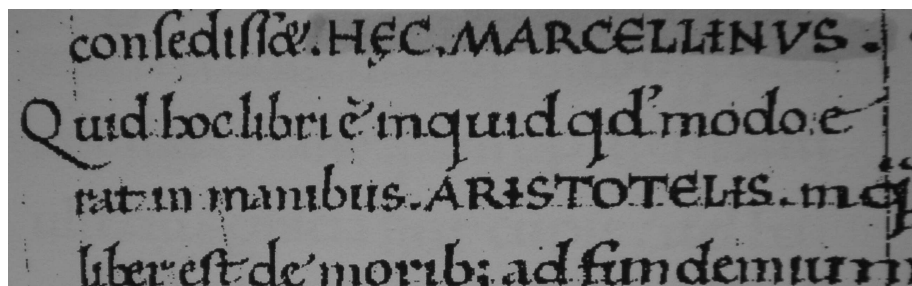 consedisset. HĘC. MARCELLINVS.
Quid hoc libri ē inquid qd' modo e
rat in manibus. ARISTOTELIS. inq
liber est de morib; ad fun demium